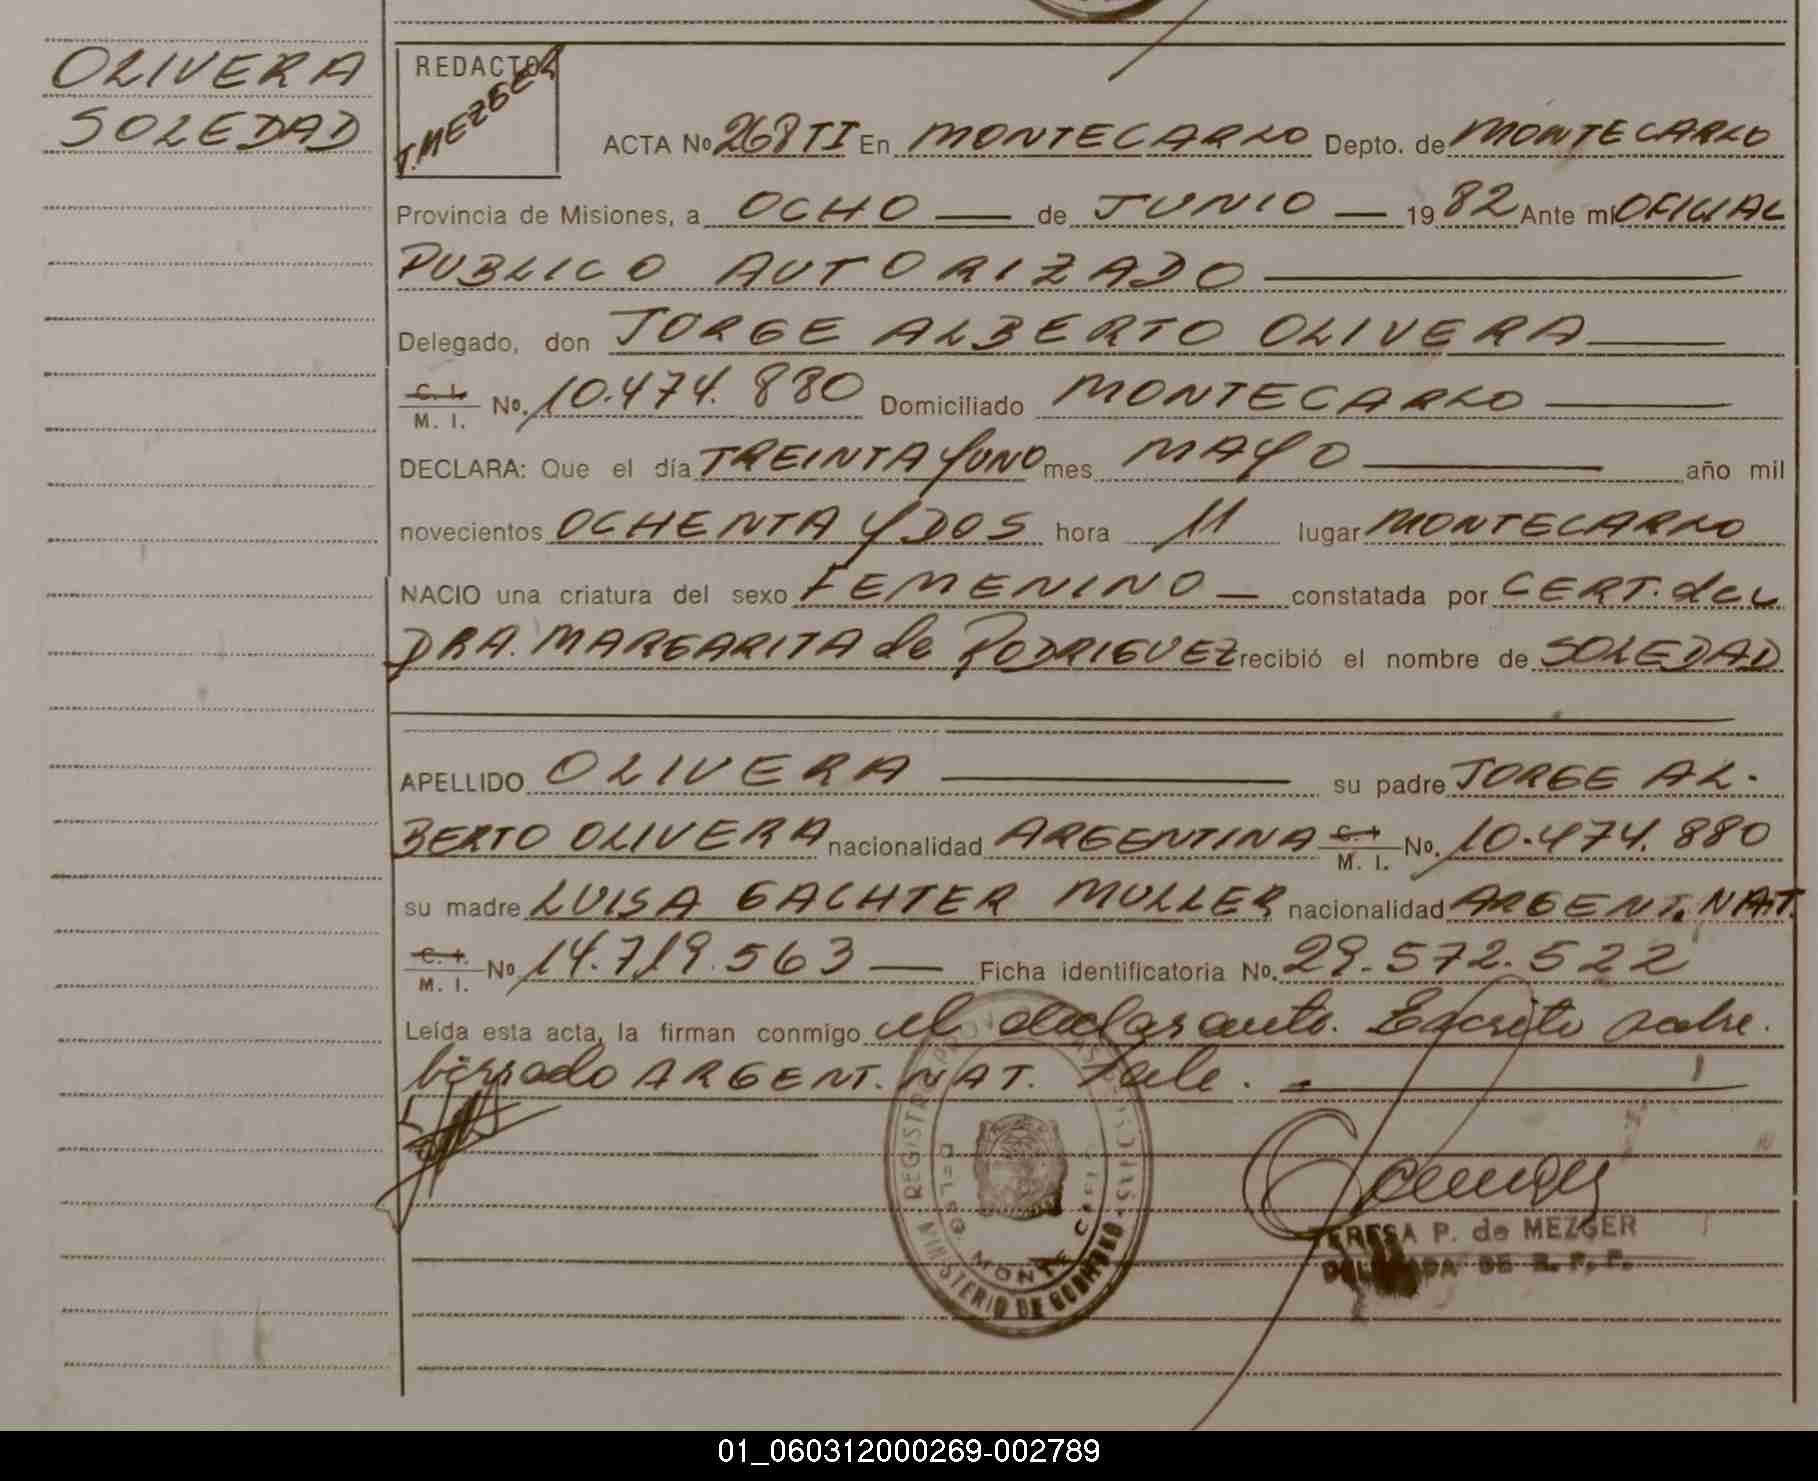 OLIVERA
SOLEDAD
REDACTOR
T. MEZGER
ACTA No 268 TI En MONTECARLO Depto. de MONTECARLO
Provincia de Misiones, a OCHO — de JUNIO — 1982 Ante mi OFICIAL
PUBLICO AUTORIZADO —
Delegado, don JORGE ALBERTO OLIVERA —
C. I.
M. I. No. 10.474.880 Domiciliado MONTECARLO —
DECLARA: Que el día TREINTA y UNO mes MAYO — año mil
novecientos OCHENTA y DOS hora 11 lugar MONTECARLO
NACIO una criatura del sexo FEMENINO — constatada por CERT. de
DRA. MARGARITA de RODRIGUEZ recibió el nombre de SOLEDAD
APELLIDO OLIVERA — su padre JORGE AL-
BERTO OLIVERA nacionalidad ARGENTINA C. I. M. I. No. 10.474.880
su madre LUISA GACHTER MULLER nacionalidad ARGENT. NAT.
C. I.
M. I. No 14.719.563 — Ficha identificatoria No. 29.572.522
Leída esta acta, la firman conmigo el declarante. Escrito sobre
borrado ARGENT. NAT. Vale. —
REGISTRO PROV. DE LAS PERSONAS
DELEG. MONTE CARLO
MINISTERIO DE GOBIERNO
TERESA P. de MEZGER
DELEGADA DE R. P. P.
01_060312000269-002789